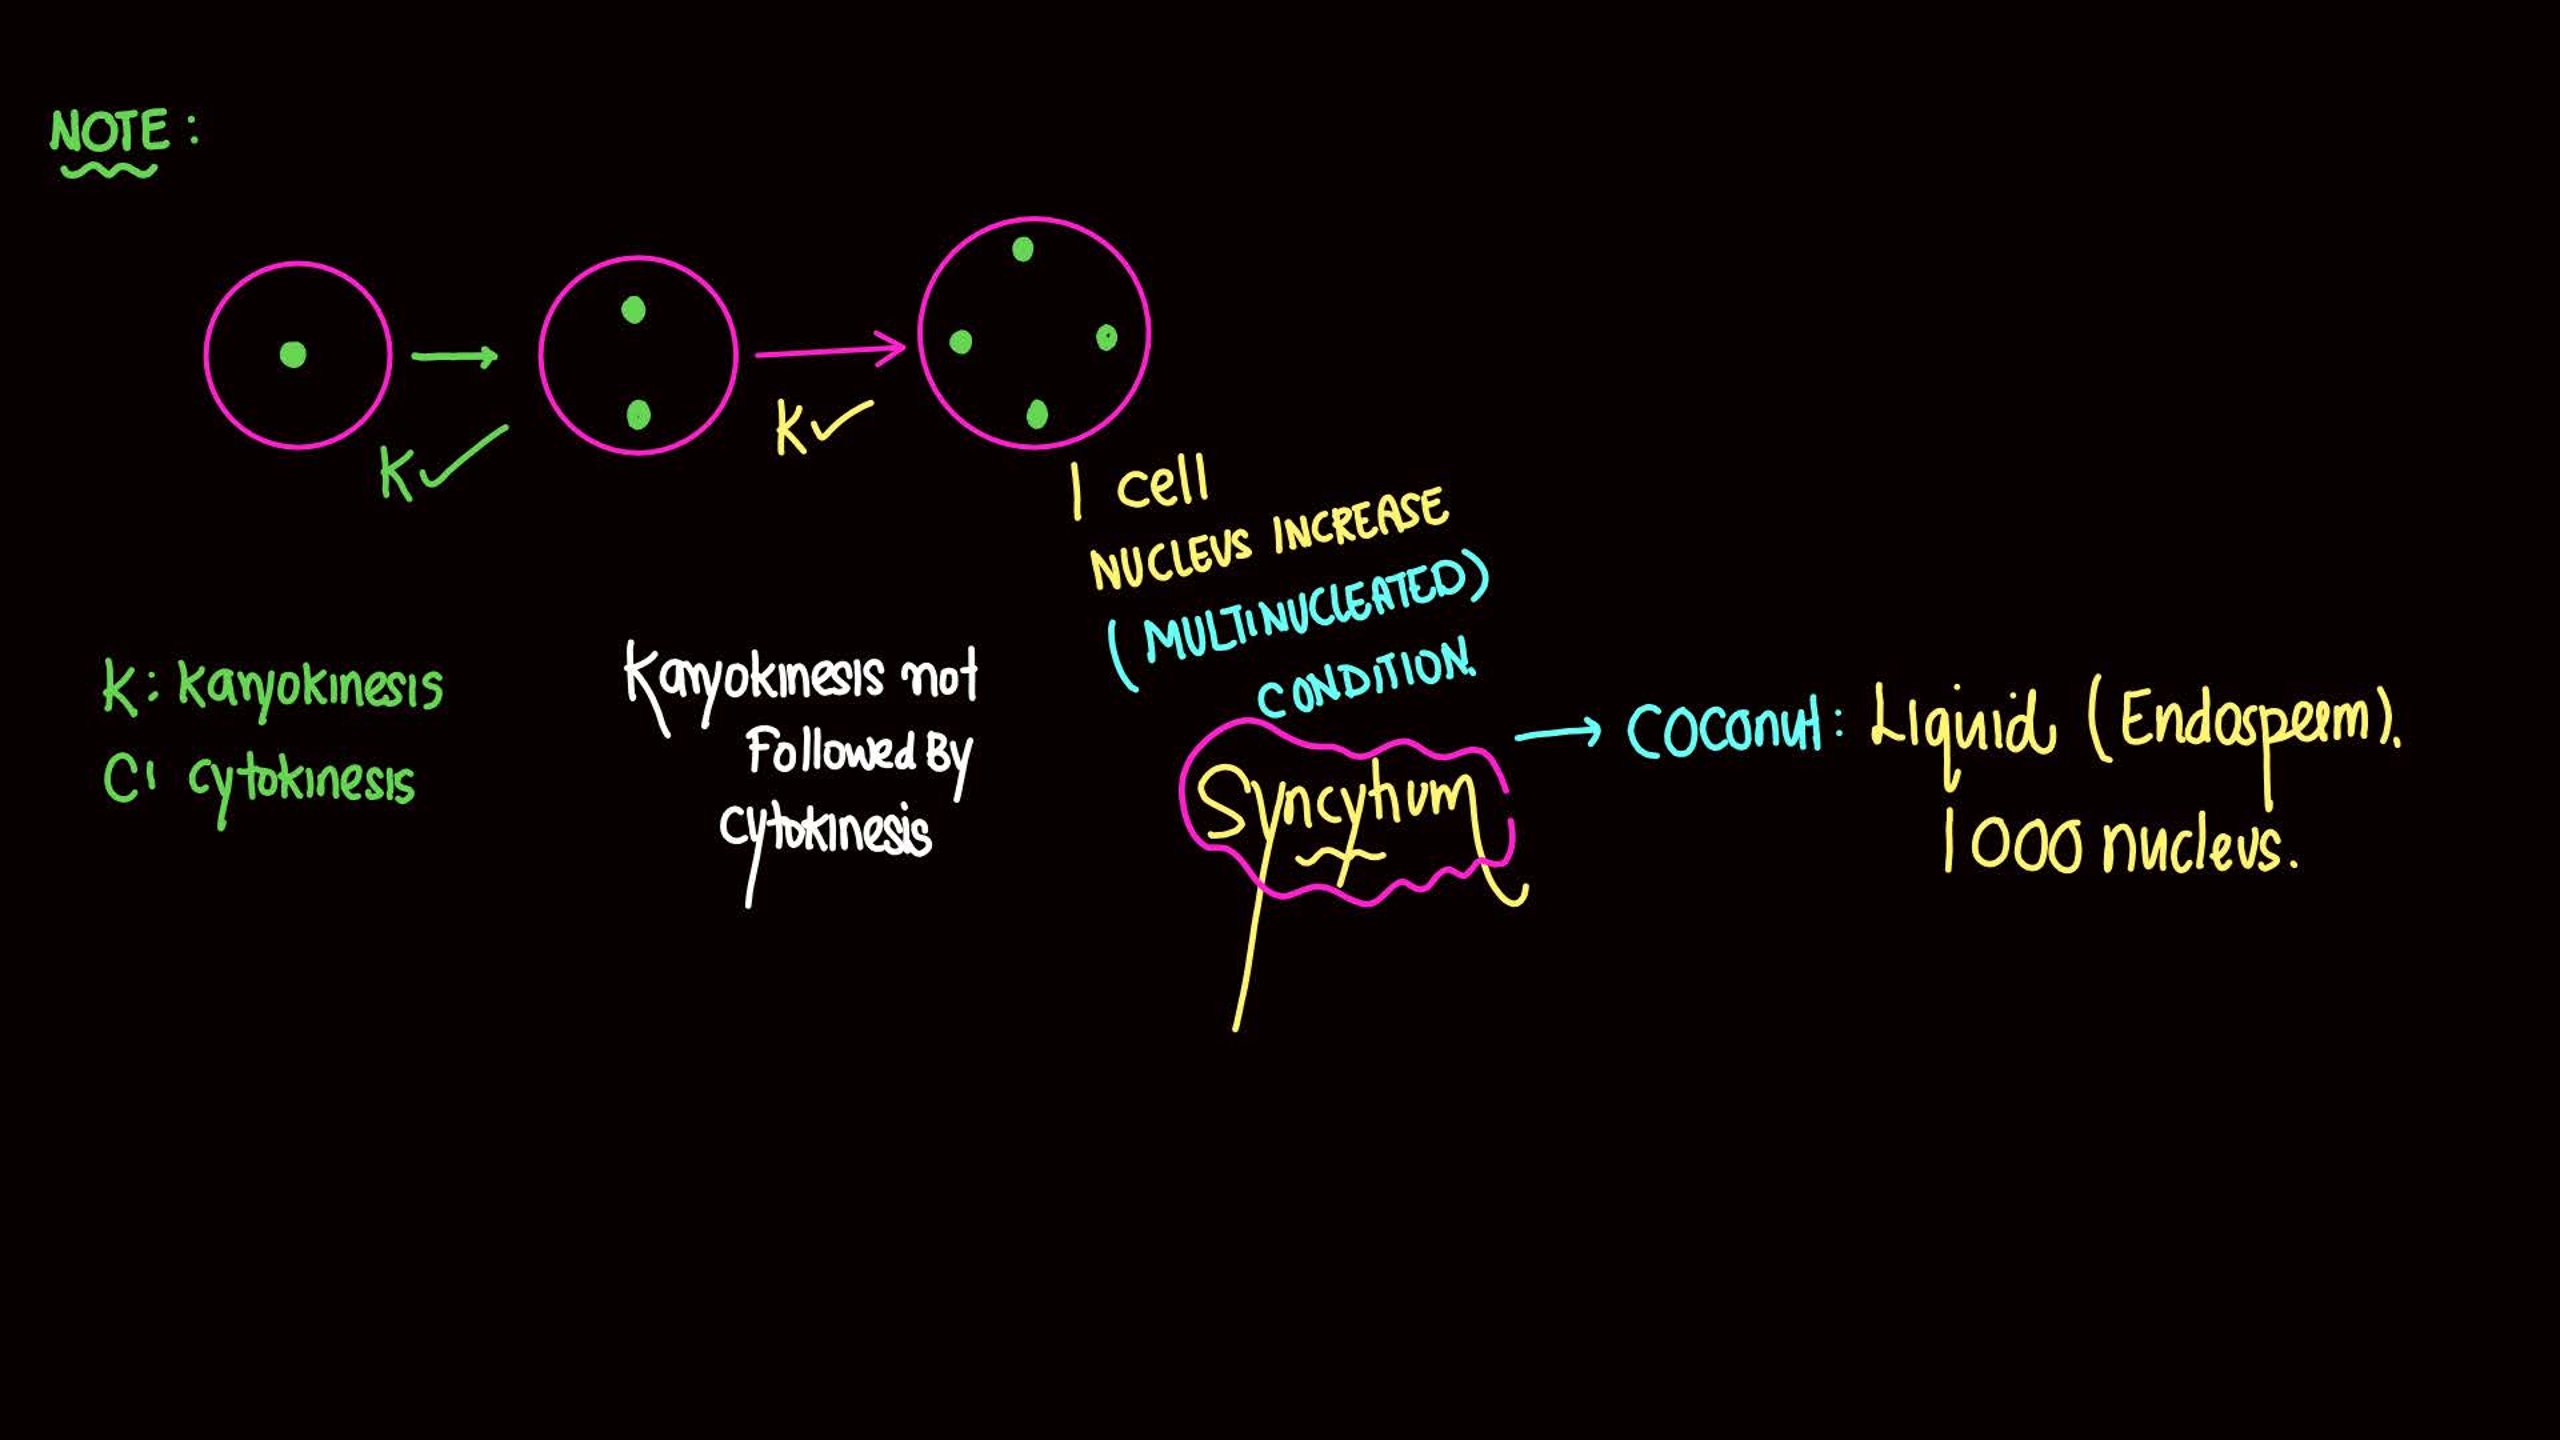 NOTE:
K✓
K✓
1 cell
NUCLEUS INCREASE
(MULTINUCLEATED)
CONDITION.
K: Karyokinesis
C: cytokinesis
Karyokinesis not
Followed By
cytokinesis
Syncytium
→ Coconut: Liquid (Endosperm).
1000 nucleus.